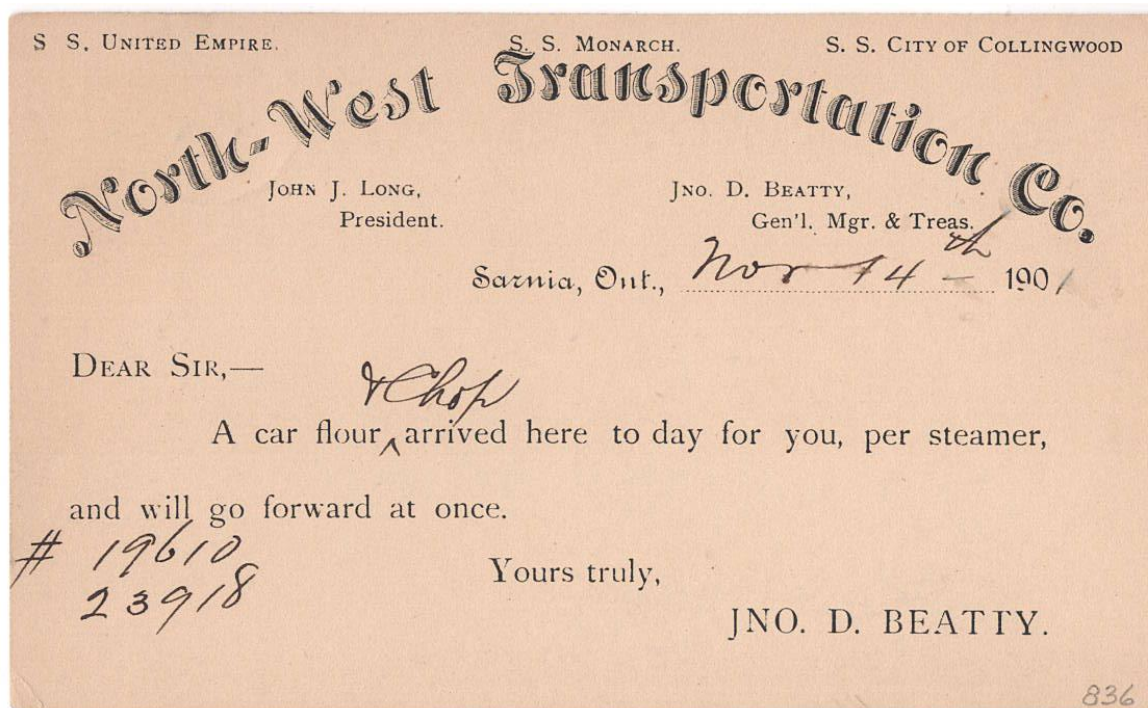 S S. UNITED EMPIRE. S. S. MONARCH. S. S. CITY OF COLLINGWOOD
North-West Transportation Co.
JOHN J. LONG, JNO. D. BEATTY,
President. Gen'l. Mgr. & Treas.
Sarnia, Ont., Nov 14th 1901
DEAR SIR,—
& Chop
A car flour ^ arrived here to day for you, per steamer,
and will go forward at once.
# 19610
Yours truly,
23918
JNO. D. BEATTY.
836